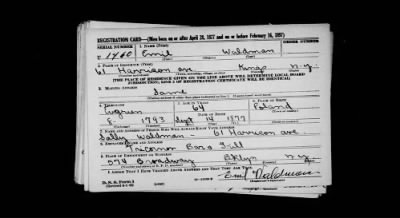 REGISTRATION CARD—(Men born on or after April 28, 1877 and on or before February 16, 1897)
SERIAL NUMBER 1. NAME (Print) ORDER NUMBER
U 1460 Emil Waldman
2. PLACE OF RESIDENCE (Print)
61 Harrison ave Kings N.Y.
[THE PLACE OF RESIDENCE GIVEN ON THE LINE ABOVE WILL DETERMINE LOCAL BOARD
JURISDICTION; LINE 2 OF REGISTRATION CERTIFICATE WILL BE IDENTICAL]
3. MAILING ADDRESS
Same
4. TELEPHONE 5. AGE IN YEARS 6. PLACE OF BIRTH
64 Poland
8- 1793 Sept 14 1877
7. NAME AND ADDRESS OF PERSON WHO WILL ALWAYS KNOW YOUR ADDRESS
Sally Waldman - 61 Harrison ave
8. EMPLOYER'S NAME AND ADDRESS
Tricornor Bar & Grill
9. PLACE OF EMPLOYMENT OR BUSINESS
574 Broadway Bklyn N.Y.
I AFFIRM THAT I HAVE VERIFIED ABOVE ANSWERS AND THAT THEY ARE TRUE.
D. S. S. Form 1
Emil Waldman